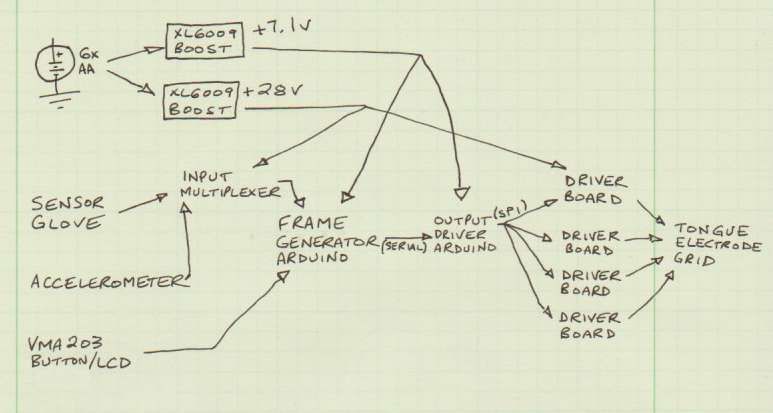 XL6009
BOOST
+7.1V
+
6x
AA
XL6009
BOOST
+28V
INPUT
MULTIPLEXER
SENSOR
GLOVE
ACCELEROMETER
VMA203
BUTTON/LCD
FRAME
GENERATOR
ARDUINO
(SERIAL)
OUTPUT
DRIVER
ARDUINO
(SPI)
DRIVER
BOARD
DRIVER
BOARD
DRIVER
BOARD
DRIVER
BOARD
TONGUE
ELECTRODE
GRID